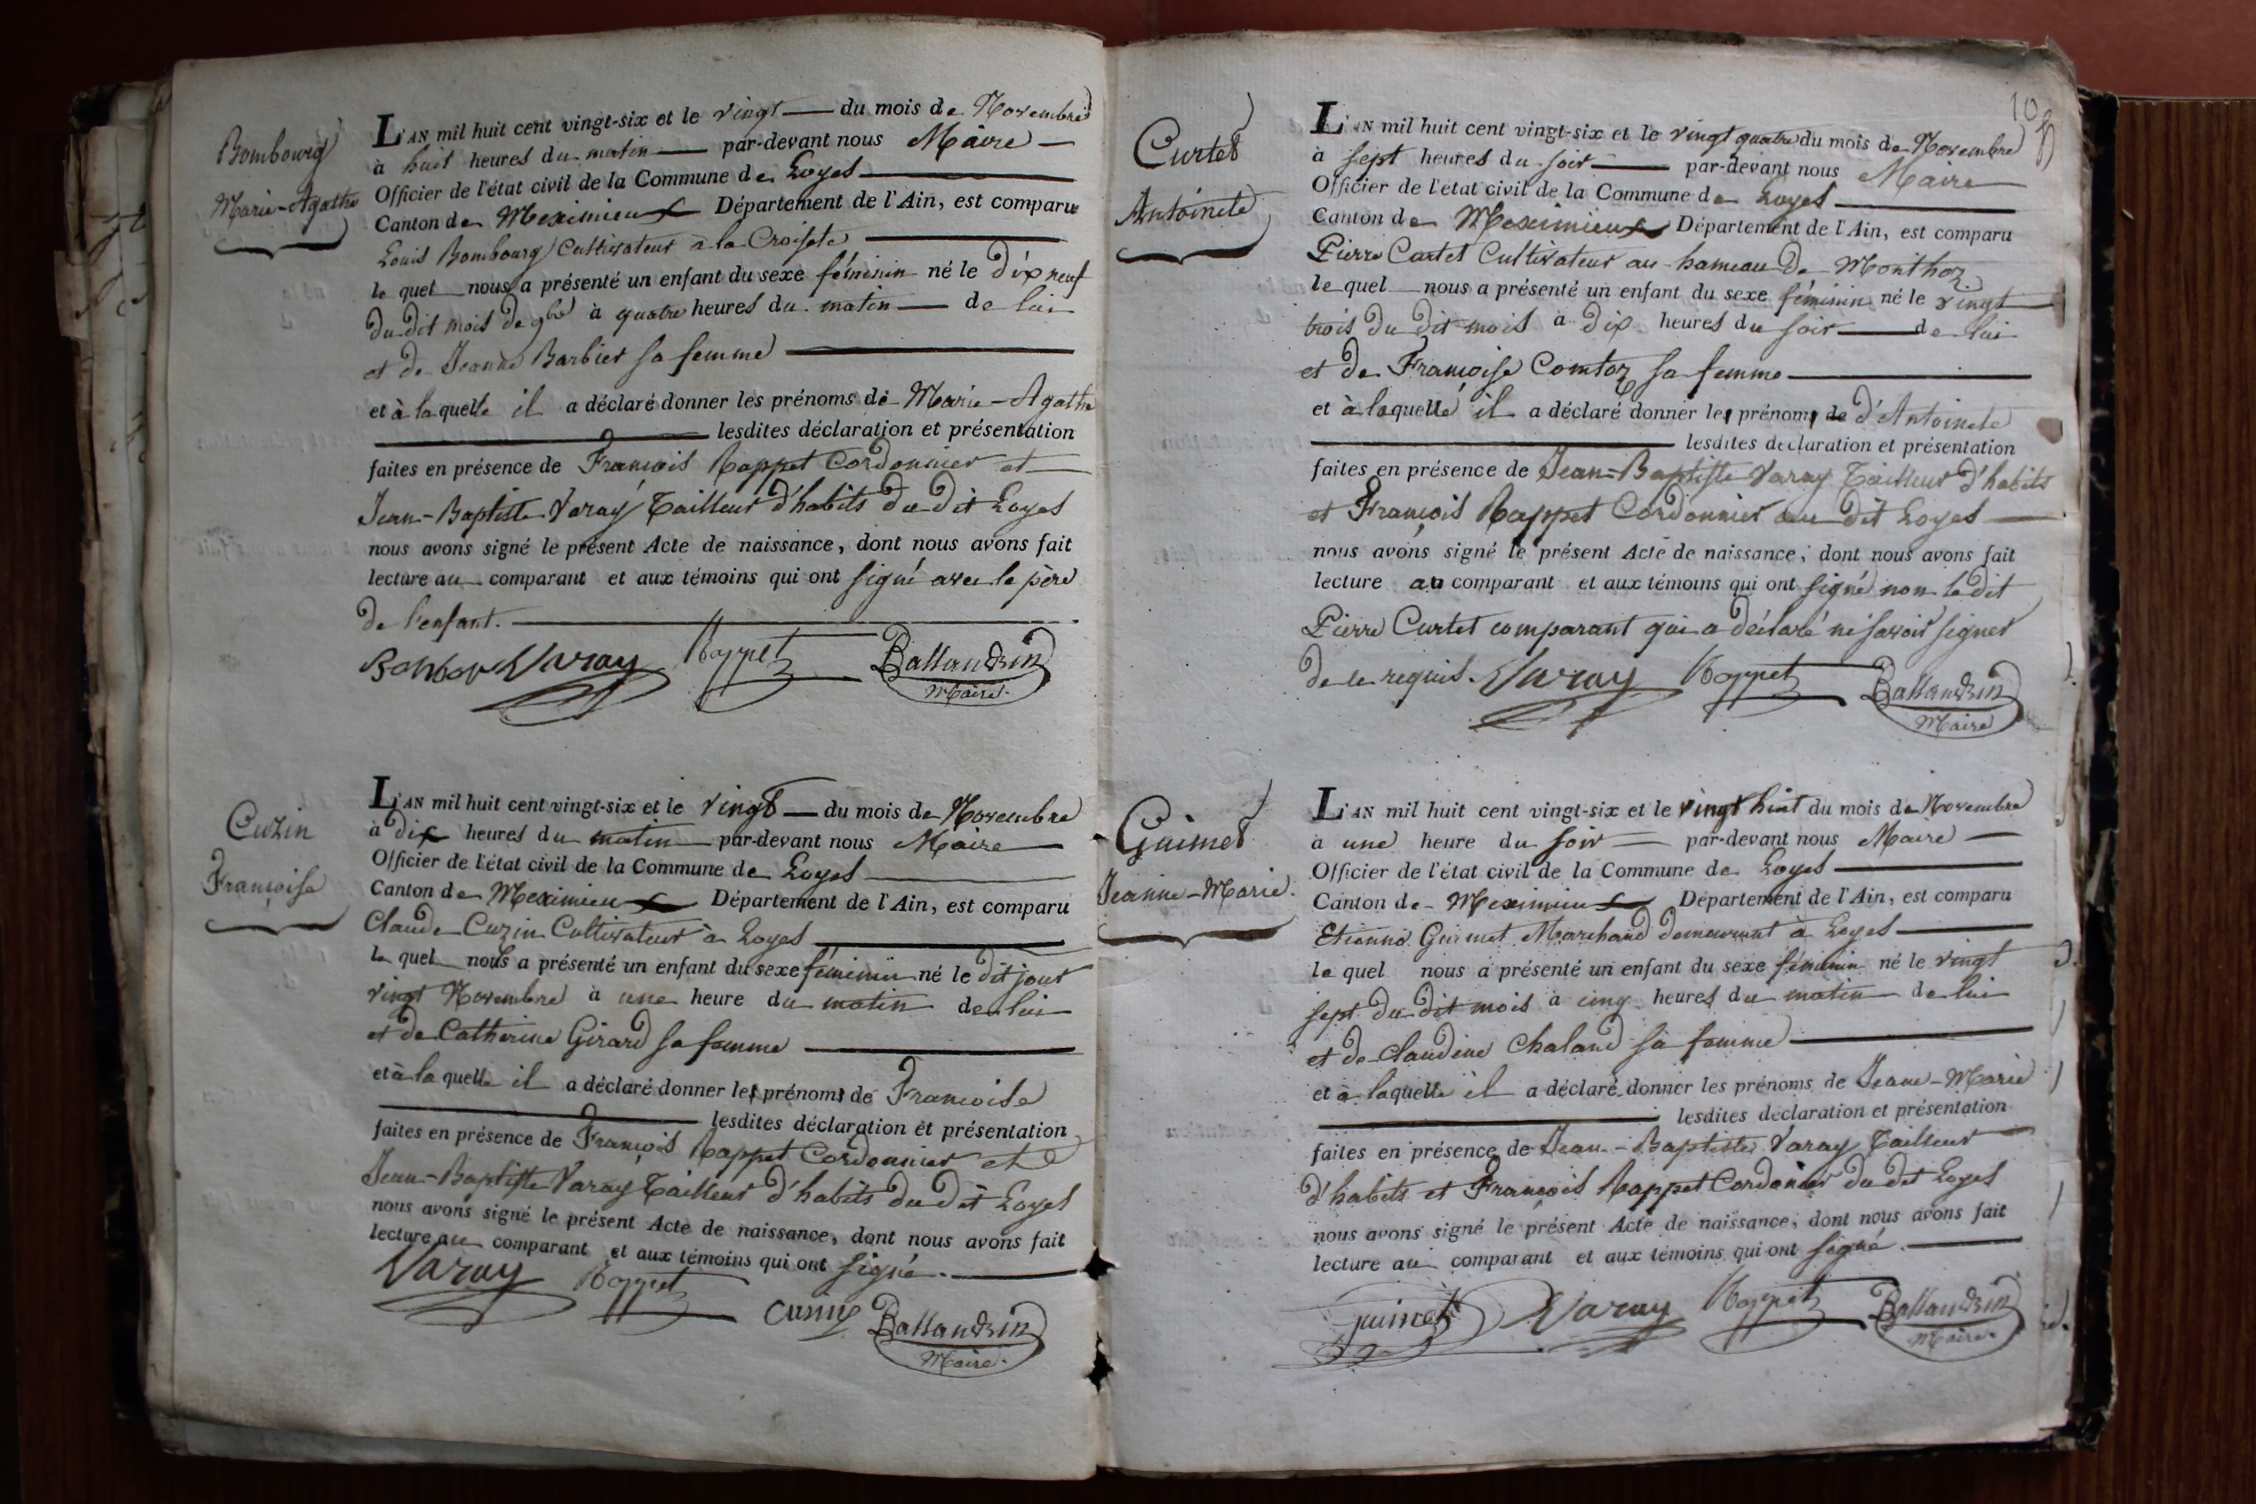 Bombourg
Marie-Agathe
L'AN mil huit cent vingt-six et le vingt du mois de Novembre
à huit heures du matin par-devant nous Maire
Officier de l'état civil de la Commune de Loyes
Canton de Meximieux Département de l'Ain, est comparu
Louis Bombourg Cultivateur à la Croisete
le quel nous a présenté un enfant du sexe féminin né le dix neuf
du dit mois de 9bre à quatre heures du matin de lui
et de Jeanne Barbier sa femme
et à laquelle il a déclaré donner les prénoms de Marie-Agathe
lesdites déclaration et présentation
faites en présence de François Rappet Cordonnier et
Jean-Baptiste Varay Tailleur d'habits du dit Loyes
nous avons signé le présent Acte de naissance, dont nous avons fait
lecture au comparant et aux témoins qui ont signé avec le père
de l'enfant.
Varay Rappet Ballandrin
Maire.
Cuzin
Françoise
L'AN mil huit cent vingt-six et le vingt du mois de Novembre
à dix heures du matin par-devant nous Maire
Officier de l'état civil de la Commune de Loyes
Canton de Meximieux Département de l'Ain, est comparu
Claude Cuzin Cultivateur à Loyes
le quel nous a présenté un enfant du sexe féminin né le dit jour
vingt Novembre à une heure du matin de lui
et de Catherine Girard sa femme
et à laquelle il a déclaré donner les prénoms de Françoise
lesdites déclaration et présentation
faites en présence de François Rappet Cordonnier et
Jean-Baptiste Varay Tailleur d'habits du dit Loyes
nous avons signé le présent Acte de naissance, dont nous avons fait
lecture au comparant et aux témoins qui ont signé.
Varay Rappet Ballandrin
Maire.
10
Curtet
Antoinete
L'AN mil huit cent vingt-six et le vingt quatre du mois de Novembre
à sept heures du soir par-devant nous Maire
Officier de l'état civil de la Commune de Loyes
Canton de Meximieux Département de l'Ain, est comparu
Pierre Curtet Cultivateur au hameau de Monthoz
le quel nous a présenté un enfant du sexe féminin né le vingt
trois du dit mois à dix heures du soir de lui
et de Françoise Comtoz sa femme
et à laquelle il a déclaré donner les prénoms de d'Antoinete
lesdites déclaration et présentation
faites en présence de Jean-Baptiste Varay Tailleur d'habits
et François Rappet Cordonnier au dit Loyes
nous avons signé le présent Acte de naissance, dont nous avons fait
lecture au comparant et aux témoins qui ont signé non le dit
Pierre Curtet comparant qui a déclaré ne savoir signer
de le requis. Varay Rappet Ballandrin
Maire
Guimet
Jeanne-Marie.
L'AN mil huit cent vingt-six et le vingt huit du mois de Novembre
à une heure du soir par-devant nous Maire
Officier de l'état civil de la Commune de Loyes
Canton de Meximieux Département de l'Ain, est comparu
Etienne Guimet Marchand demeurant à Loyes
le quel nous a présenté un enfant du sexe féminin né le vingt
sept du dit mois à cinq heures du matin de lui
et de Claudine Chaland sa femme
et à laquelle il a déclaré donner les prénoms de Jeane-Marie
lesdites déclaration et présentation
faites en présence de Jean-Baptiste Varay Tailleur
d'habits et François Rappet Cordonier du dit Loyes
nous avons signé le présent Acte de naissance, dont nous avons fait
lecture au comparant et aux témoins qui ont signé.
guimet Varay Rappet Ballandrin
Maire.